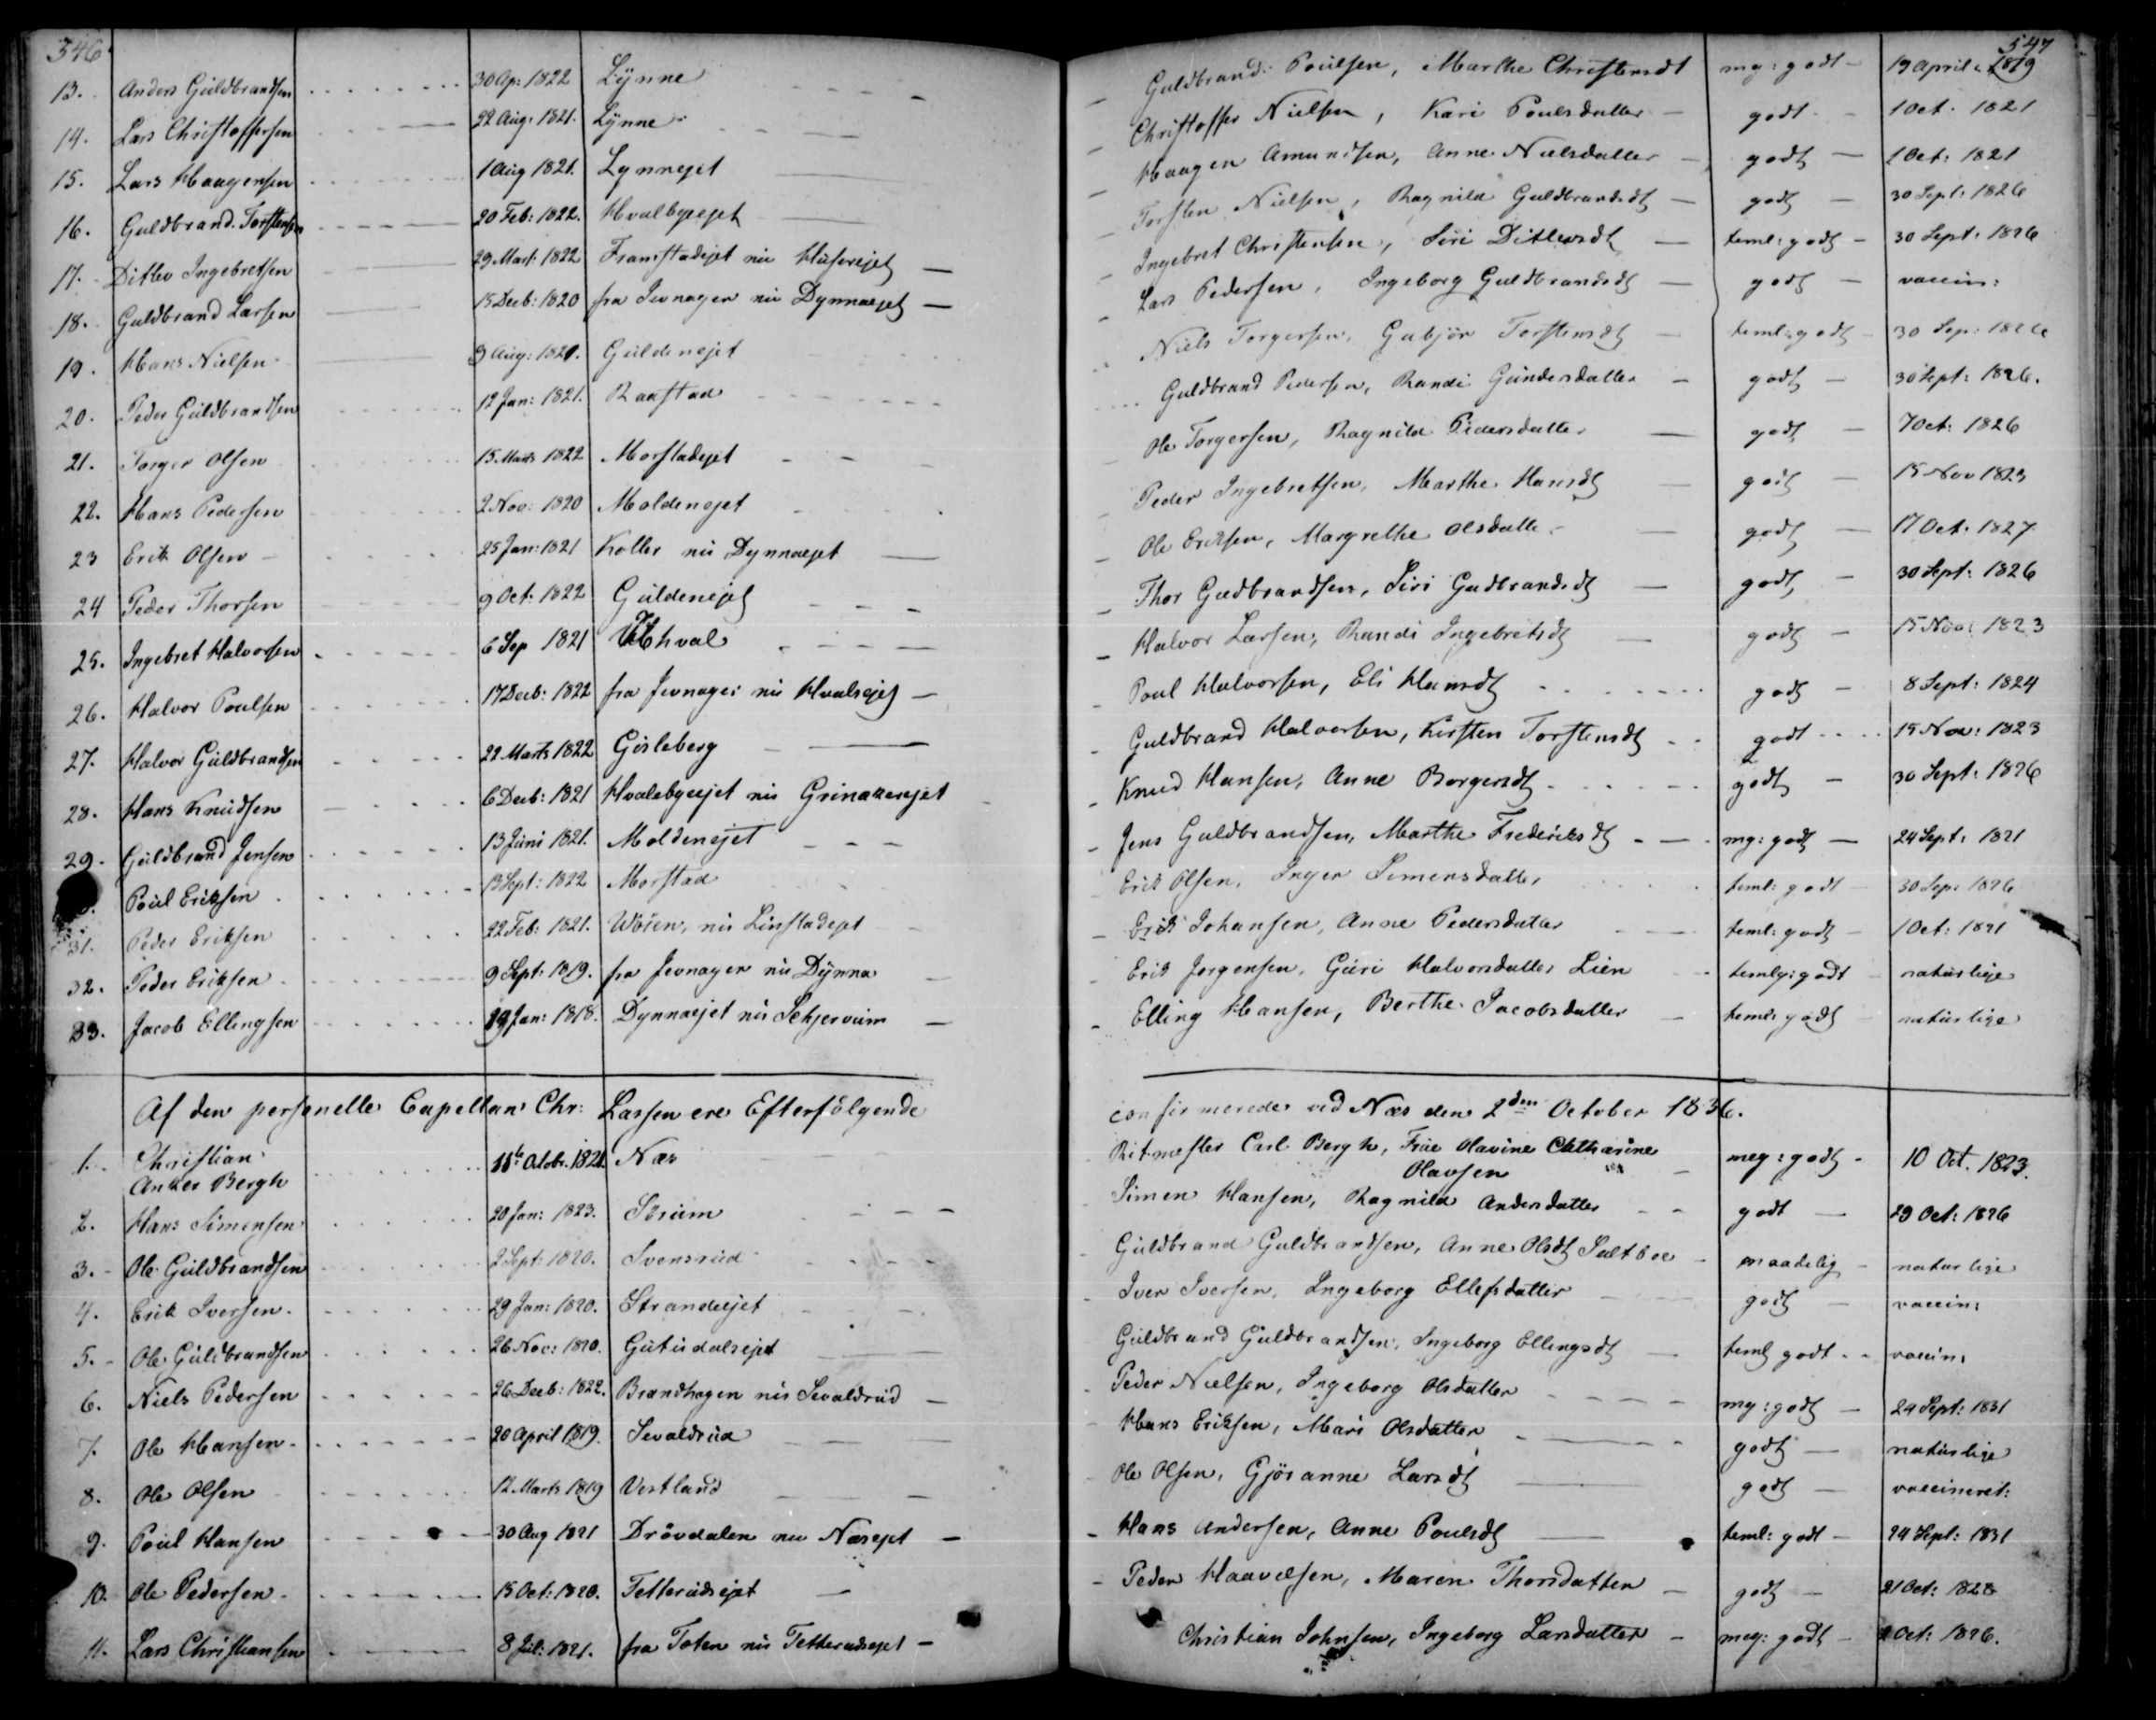 546
547
13. Anders Guldbrandsen 30 Ap: 1822 Lynne Guldbrand Poulsen, Marthe Christensdt mg: godt 19 April 1819
14. Lars Christoffersen 22 Aug: 1821. Lynne Christoffer Nielsen, Kari Poulsdatter godt 1 Oct. 1821
15. Lars Haagensen 1 Aug 1821. Lynneejet Haagen Amundsen, Anne Nielsdatter godt 1 Oct: 1821
16. Guldbrand Torstensen 20 Feb: 1822. Hvalbyeejet Torsten Nielsen, Ragnild Guldbrandsdt godt 30 Sept: 1826
17. Ditlev Ingebretsen 29 Mart: 1822 Framstadejet nu Huserejet Ingebret Christensen, Siri Ditlevsdt teml: godt 30 Sept: 1826
18. Guldbrand Larsen 15 Decb: 1820 fra Jevnager nu Dynnaejet Lars Pedersen, Ingeborg Guldbrandsdt godt vaccin:
19. Hans Nielsen 9 Aug: 1821. Guldenejet Niels Torgersen, Gubjør Torstensdt teml: godt 30 Sep: 1826
20. Peder Guldbrandsen 12 Jan: 1821. Raastad Guldbrand Pedersen, Randi Gundersdatter godt 30 Sept: 1826.
21. Torger Olsen 15 Marts 1822 Morstadejet Ole Torgersen, Ragnild Pedersdatter godt 7 Oct: 1826
22. Hans Pedersen 2 Nov: 1820 Moldenejet Peder Ingebretsen, Marthe Hansdt godt 15 Nov 1823
23 Erik Olsen 25 Jan: 1821 Koller nu Dynnaejet Ole Eriksen, Margrethe Olsdatter godt 17 Oct. 1827
24 Peder Thorsen 9 Oct: 1822 Guldenejet Thor Gudbrandsen, Siri Gudbrandsdt godt 30 Sept: 1826
25. Ingebret Halvorsen 6 Sep 1821 Hval Halvor Larsen, Randi Ingebretsdt godt 15 Nov: 1823
26. Halvor Poulsen 17 Decb: 1822 fra Jevnager nu Hvalsejet Poul Halvorsen, Eli Hansdt godt 8 Sept: 1824
27. Halvor Guldbrandsen 22 Marts 1822 Gisleberg Guldbrand Halvorsen, Kirsten Torstensdt godt 15 Nov: 1823
28. Hans Knudsen 6 Decb: 1821 Hvalebyeejet nu Grinakerejet Knud Hansen, Anne Borgersdt godt 30 Sept: 1826
29. Guldbrand Jensen 13 Juni 1821. Moldenejet Jens Guldbrandsen, Marthe Frederiksdt mg: godt 24 Sept: 1821
Poul Eriksen 13 Sept: 1822 Morstad Erik Olsen, Inger Simensdatter teml: godt 30 Sep: 1826
31. Peder Eriksen 22 Feb: 1821. Woien, nu Linstadejet Erik Johansen, Anne Pedersdatter teml: godt 1 Oct: 1821
32. Peder Eriksen 9 Sept: 1819. fra Jevnager nu Dynna Erik Jørgensen, Guri Halvorsdatter Lien temlg: godt naturlige
33. Jacob Ellingsen 19 Jan: 1818. Dynnaejet nu Schjervum Elling Hansen, Berthe Jacobsdatter teml: godt naturlige
Af den personelle Capellan Chr: Lassen ere Efterfølgende confirmerede ved Næs den 2den October 1836.
1. Christian Anker Bergh 11te Octobr. 1821. Næs Ritmester Carl Bergh, Frue Olavine Catharine Olavsen meg: godt 10 Oct. 1823.
2. Hans Simensen 20 Jan: 1823. Sørum Simen Hansen, Ragnild Andersdatter godt 29 Oct: 1826
3. Ole Guldbrandsen 2 Sept: 1820. Svensrud Guldbrand Guldbrandsen, Anne Olsdt Saltboe maadelig naturlige
4. Erik Iversen 29 Jan: 1820. Strandejet Iver Iversen, Ingeborg Ellefsdatter godt vaccin:
5. Ole Guldbrandsen 26 Nov: 1820. Gutudalsejet Guldbrand Guldbrandsen, Ingeborg Ellingsdt teml godt vaccin:
6. Niels Pedersen 26 Decb: 1822. Brandhagen nu Sevaldrud Peder Nielsen, Ingeborg Olsdatter mg: godt 24 Sept: 1831
7. Ole Hansen 20 April 1819. Sevaldrud Hans Eriksen, Mari Olsdatter godt naturlige
8. Ole Olsen 12 Marts 1819 Vestland Ole Olsen, Gjøranne Larsdt godt vaccineret:
9. Poul Hansen 30 Aug 1821 Drøvdalen nu Næsejet Hans Andersen, Anne Poulsdt teml: godt 24 Sept: 1831
10. Ole Pedersen 15 Oct: 1820. Tetterudsejet Peder Haavelsen, Maren Thorsdatter godt 21 Oct: 1828
11. Lars Christiansen 8 Jul: 1821. fra Toten nu Tetterudsejet Christian Johnsen, Ingeborg Larsdatter meg: godt Oct: 1826.